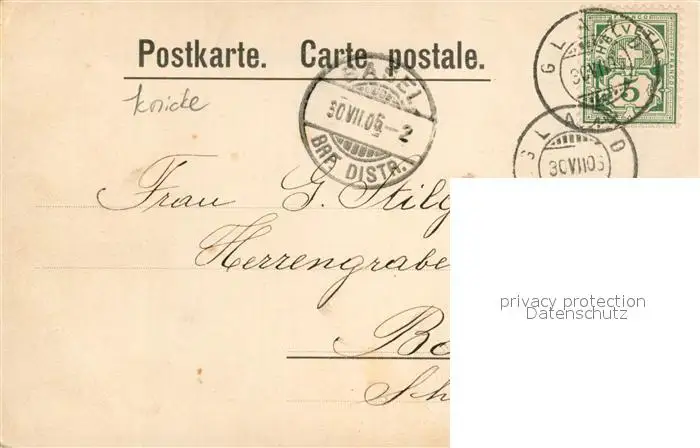 Postkarte. Carte postale.
knicke
HELVETIA
5
BASEL
30.VII.06-2
BRF. DISTR.
GLAND
30 VII 06
Frau G. Stilg
Herrengrabe
privacy protection
Datenschutz